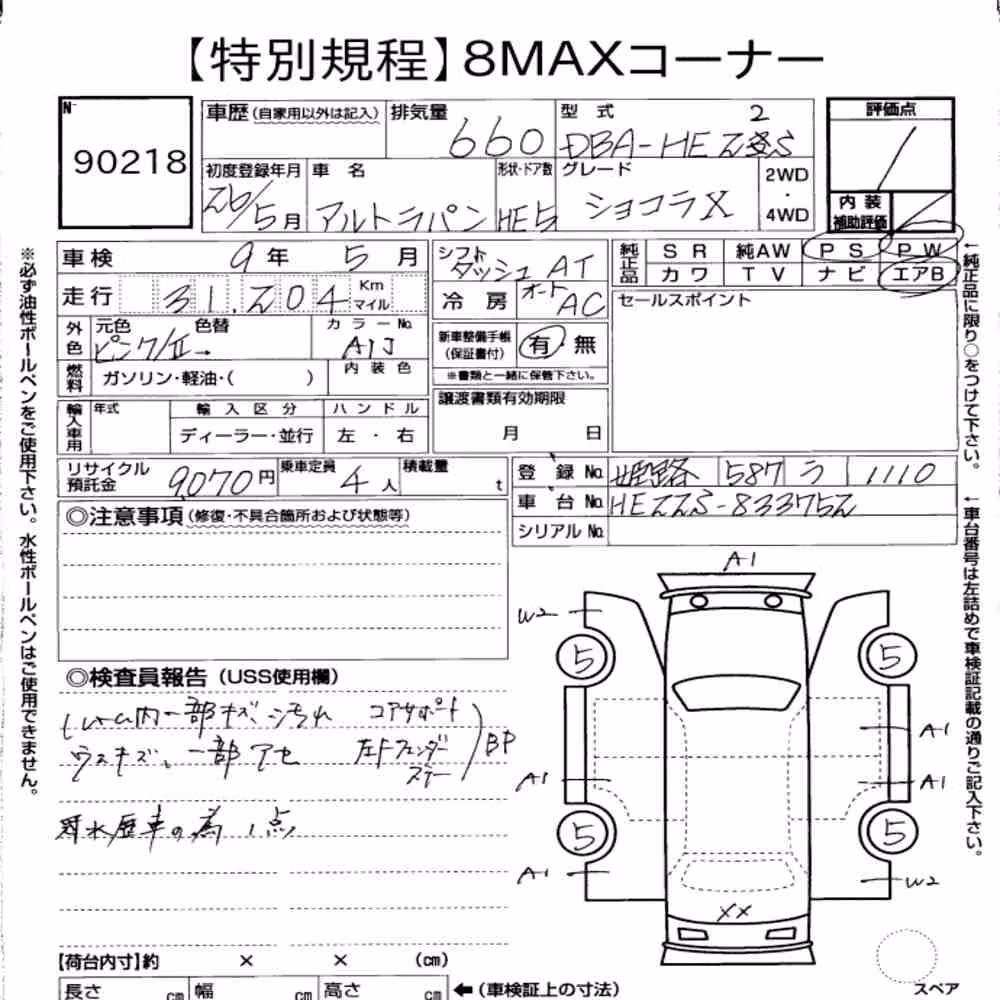 【特別規程】8MAXコーナー
N-
90218
車歴 (自家用以外は記入)
排気量
660
型 式
2
DBA-HE22S
評価点
1
初度登録年月
26/5月
車 名
アルトラパン
形状・ドア数
HE 5
グレード
ショコラX
2WD
・
4WD
内 装
補助評価
車検
9年 5月
シフト
ダッシュ AT
純正品
S R 純AW P S P W
カワ T V ナビ エアB
走行
31.204
Km
マイル
冷 房
オート AC
セールスポイント
外色
元色
色替
ピンク/II→
カラーNo.
A1J
新車整備手帳
(保証書付)
有・無
※書類と一緒に保管下さい。
燃料
ガソリン・軽油・( )
内装色
譲渡書類有効期限
月 日
輸入車用
年式
輸入区分
ハンドル
ディーラー・並行
左・右
リサイクル
預託金
9,070円
乗車定員
4人
積載量
t
登 録 No. 姫路 587 う 1110
車 台 No. HE22S-833752
シリアル No.
◎注意事項 (修復・不具合箇所および状態等)
◎検査員報告 (USS使用欄)
しゃない一部キズ、汚れ コアサポート
ウスキズ、一部アセ 左Fフェンダー BP
ステー
冠水歴車の為 1点
A1
W2
5
5
A1
A1
A1
5
5
A1
W2
XX
【荷台内寸】約 × × (cm)
長さ cm 幅 cm 高さ cm
←(車検証上の寸法)
スペア
※必ず油性ボールペンをご使用下さい。水性ボールペンはご使用できません。
←純正品に限り○をつけて下さい。
←車台番号は左詰めで車検証記載の通りご記入下さい。